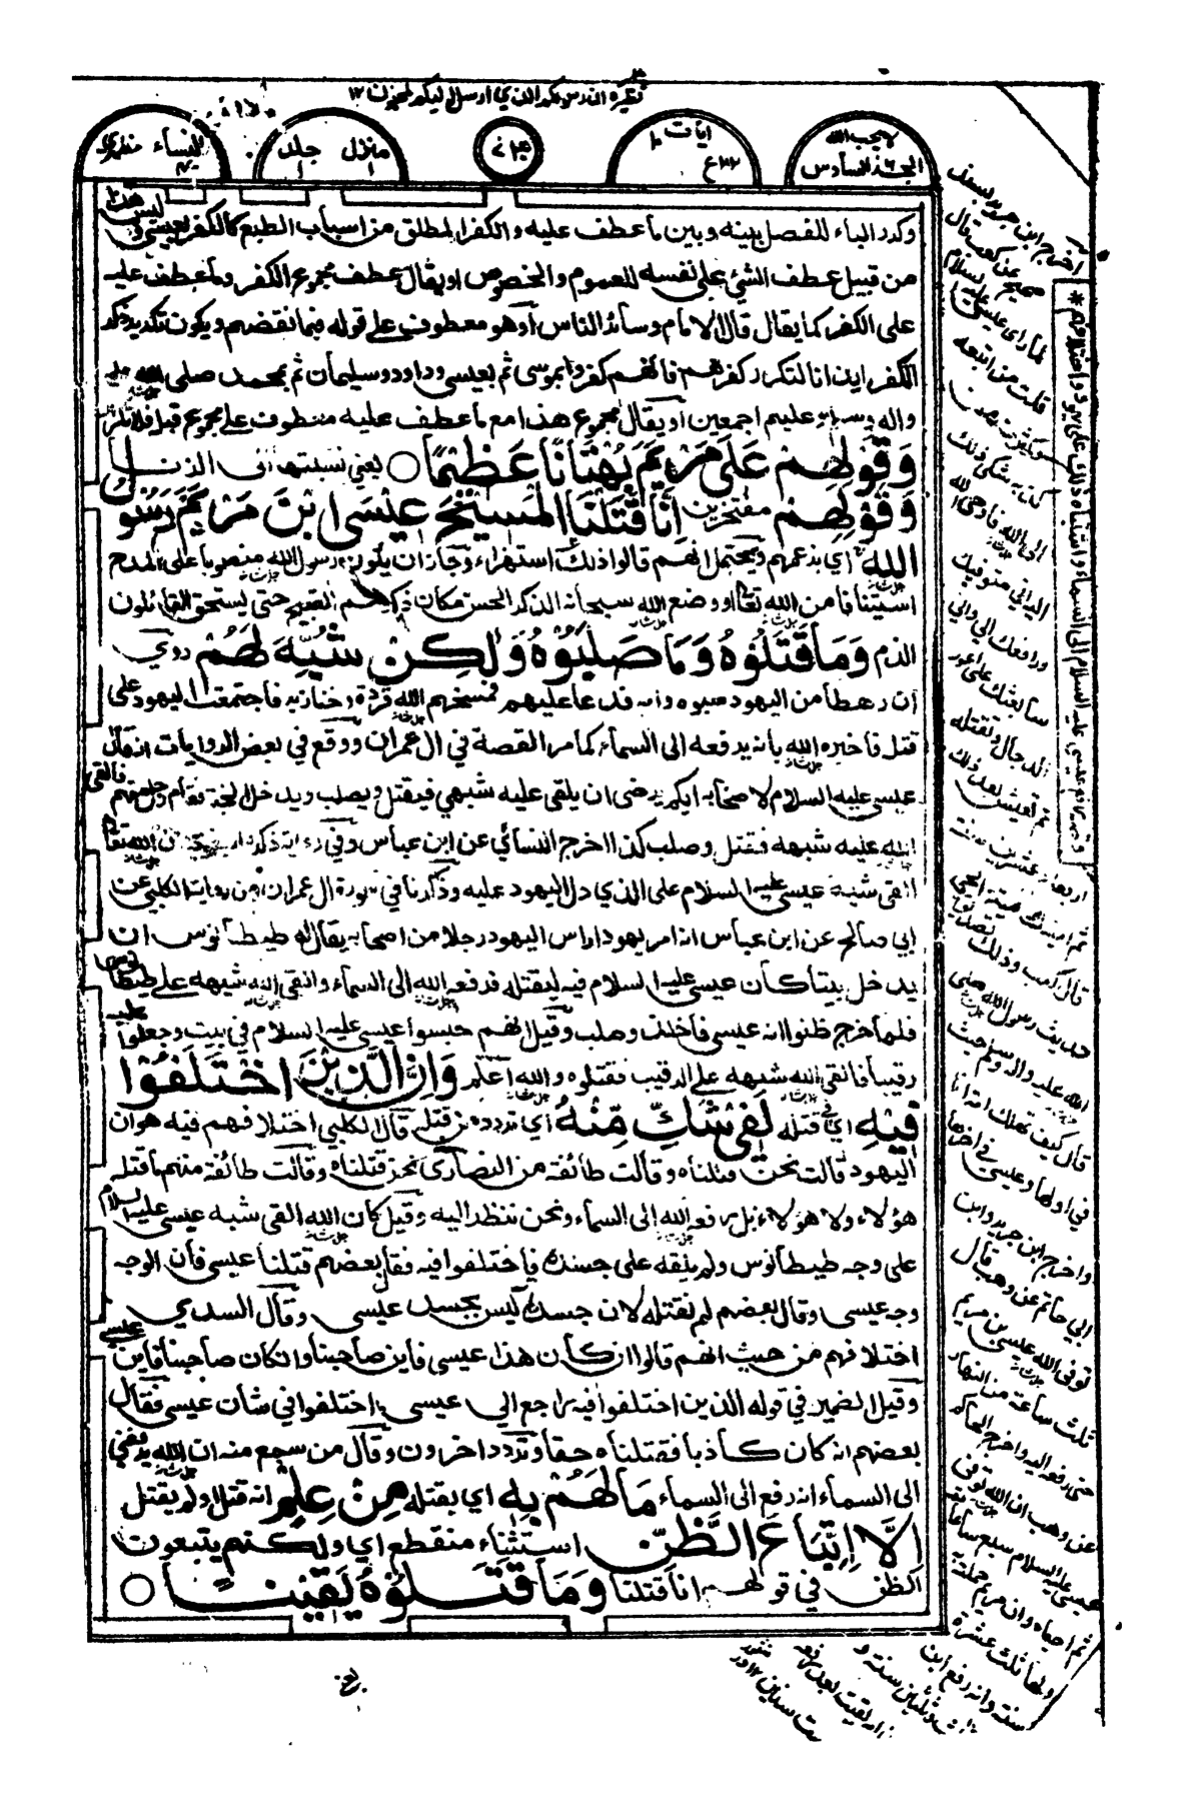 نظيره ان رسولكم الذي ارسل اليكم لمجنون ١٢
لا يحب الله
الجزء السادس
ايات
ع
منزل جلد
النساء مظهري
وكرر الباء للفصل بينه وبين ما عطف عليه والكفر المطلق من اسباب الطبع كالكفر بعيسى ليس هذا
من قبيل عطف الشيء على نفسه للعموم والخصوص او يقال عطف مجموع الكفر وما عطف عليه
على الكفر كما يقال قال الامام وسائر الناس أو هو معطوف على قوله فبما نقضهم ويكون تكرير ذكر
الكفر ايذانا لتكرر كفرهم فانهم كفروا بموسى ثم بعيسى وداود وسليمان ثم بمحمد صلى الله عليه
واله وسلم وعليهم اجمعين او يقال مجموع هذا مع ما عطف عليه معطوف على مجموع قبله
وَقَوْلِهِمْ عَلٰى مَرْيَمَ بُهْتَانًا عَظِيْمًا ○ يعني نسبتها الى الزنا
وَقَوْلِهِمْ مفتخرين اِنَّا قَتَلْنَا الْمَسِيْحَ عِيْسَى ابْنَ مَرْيَمَ رَسُوْلَ
اللهِ اي بزعمهم ويحتمل انهم قالوا ذلك استهزاء وجاز ان يكون رسول الله منصوبا على المدح
استينافا من الله تعالى او وضع الله سبحانه الذكر الحسن مكان ذكرهم القبيح حتى يستحق القائلون
الذم وَمَا قَتَلُوْهُ وَمَا صَلَبُوْهُ وَلٰكِنْ شُبِّهَ لَهُمْ روي
ان رهطا من اليهود سبوه وامه فدعا عليهم فمسخهم الله قردة وخنازير فاجتمعت اليهود على
قتله فاخبره الله بانه يرفعه الى السماء كما مر القصة في ال عمران ووقع في بعض الروايات انه قال
عيسى عليه السلام لاصحابه ايكم يرضى ان يلقى عليه شبهي فيقتل ويصلب ويدخل الجنة فقام رجل منهم فالقى
الله عليه شبهه فقتل وصلب كذا اخرج النسائي عن ابن عباس وفي رواية ان الله تعالى
القى شبه عيسى عليه السلام على الذي دل اليهود عليه وذكرنا في سورة ال عمران من رواية الكلبي عن
ابي صالح عن ابن عباس انه امر يهودا راس اليهود رجلا من اصحابه يقال له طيطانوس ان
يدخل بيتا كان عيسى عليه السلام فيه ليقتله فرفعه الله الى السماء والقى الله شبهه على طيطانوس
فلما خرج ظنوا انه عيسى فاخذ وصلب وقيل انهم حبسوا عيسى عليه السلام في بيت وجعلوا عليه
رقيبا فالقى الله شبهه على الرقيب فقتلوه والله اعلم وَاِنَّ الَّذِيْنَ اخْتَلَفُوْا
فِيْهِ اي في قتله لَفِيْ شَكٍّ مِّنْهُ اي تردد من قتله قال الكلبي اختلافهم فيه هو ان
اليهود قالت نحن قتلناه وقالت طائفة من النصارى نحن قتلناه وقالت طائفة منهم ما قتله
هؤلاء ولا هؤلاء بل رفعه الله الى السماء ونحن ننظر اليه وقيل كان الله القى شبه عيسى عليه السلام
على وجه طيطانوس ولم يلقه على جسده فاختلفوا فيه فقال بعضهم قتلنا عيسى فان الوجه
وجه عيسى وقال بعضهم لم نقتله لان جسده ليس بجسد عيسى وقال السدي
اختلافهم من حيث انهم قالوا ان كان هذا عيسى فاين صاحبنا وان كان صاحبنا فاين عيسى
وقيل الضمير في قوله الذين اختلفوا فيه راجع الى عيسى اختلفوا في شان عيسى فقال
بعضهم انه كان كاذبا فقتلناه حقا وتردد اخرون وقال من سمع منه ان الله يرفعني
الى السماء انه رفع الى السماء مَا لَهُمْ بِهٖ اي بقتله مِنْ عِلْمٍ انه قتل او لم يقتل
اِلَّا اتِّبَاعَ الظَّنِّ استثناء منقطع اي ولكنهم يتبعون
الظن في قولهم انا قتلنا وَمَا قَتَلُوْهُ يَقِيْنًا ○
اخرج ابن جرير بسند
صحيح عن كعب قال
لما راى عيسى عليه السلام
قلة من اتبعه
وكثرة من
كذبه شكى ذلك
الى الله فاوحى الله
اليه اني متوفيك
ورافعك الي واني
سابعثك على اعور
الدجال وتقتله
ثم تعيش بعد ذلك
اربعا وعشرين سنة
ثم اميتك ميتة الحي
قال كعب وذلك تصديق
حديث رسول الله صلى
الله عليه واله وسلم حيث
قال كيف تهلك امة انا
في اولها وعيسى في اخرها
واخرج ابن جرير وابن
ابي حاتم عن وهب قال
توفى الله عيسى بن مريم
ثلث ساعة من النهار
حتى رفعه اليه واخرج الحاكم
عن وهب ان الله توفى
عيسى عليه السلام سبع ساعات
ثم احياه وان مريم حملت به
ولها ثلث عشرة
سنة وانه رفع ابن
ثلث وثلثين سنة و
بقيت بعد رفعه
ست سنين ١٢